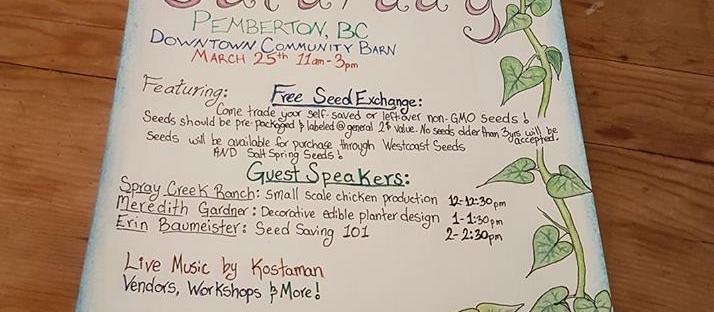 Saturday
PEMBERTON, BC
DOWNTOWN COMMUNITY BARN
MARCH 25th 11am-3pm
Featuring:
Free Seed Exchange:
Come trade your self-saved or leftover non-GMO seeds!
Seeds should be pre-packaged & labeled @ general 2$ value. No seeds older than 3yrs will be accepted.
Seeds will be available for purchase through Westcoast Seeds
AND Salt Spring Seeds!
Guest Speakers:
Spray Creek Ranch: small scale chicken production 12-12:30pm
Meredith Gardner: Decorative edible planter design 1-1:30pm
Erin Baumeister: Seed Saving 101 2-2:30pm
Live Music by Kostaman
Vendors, Workshops & More!